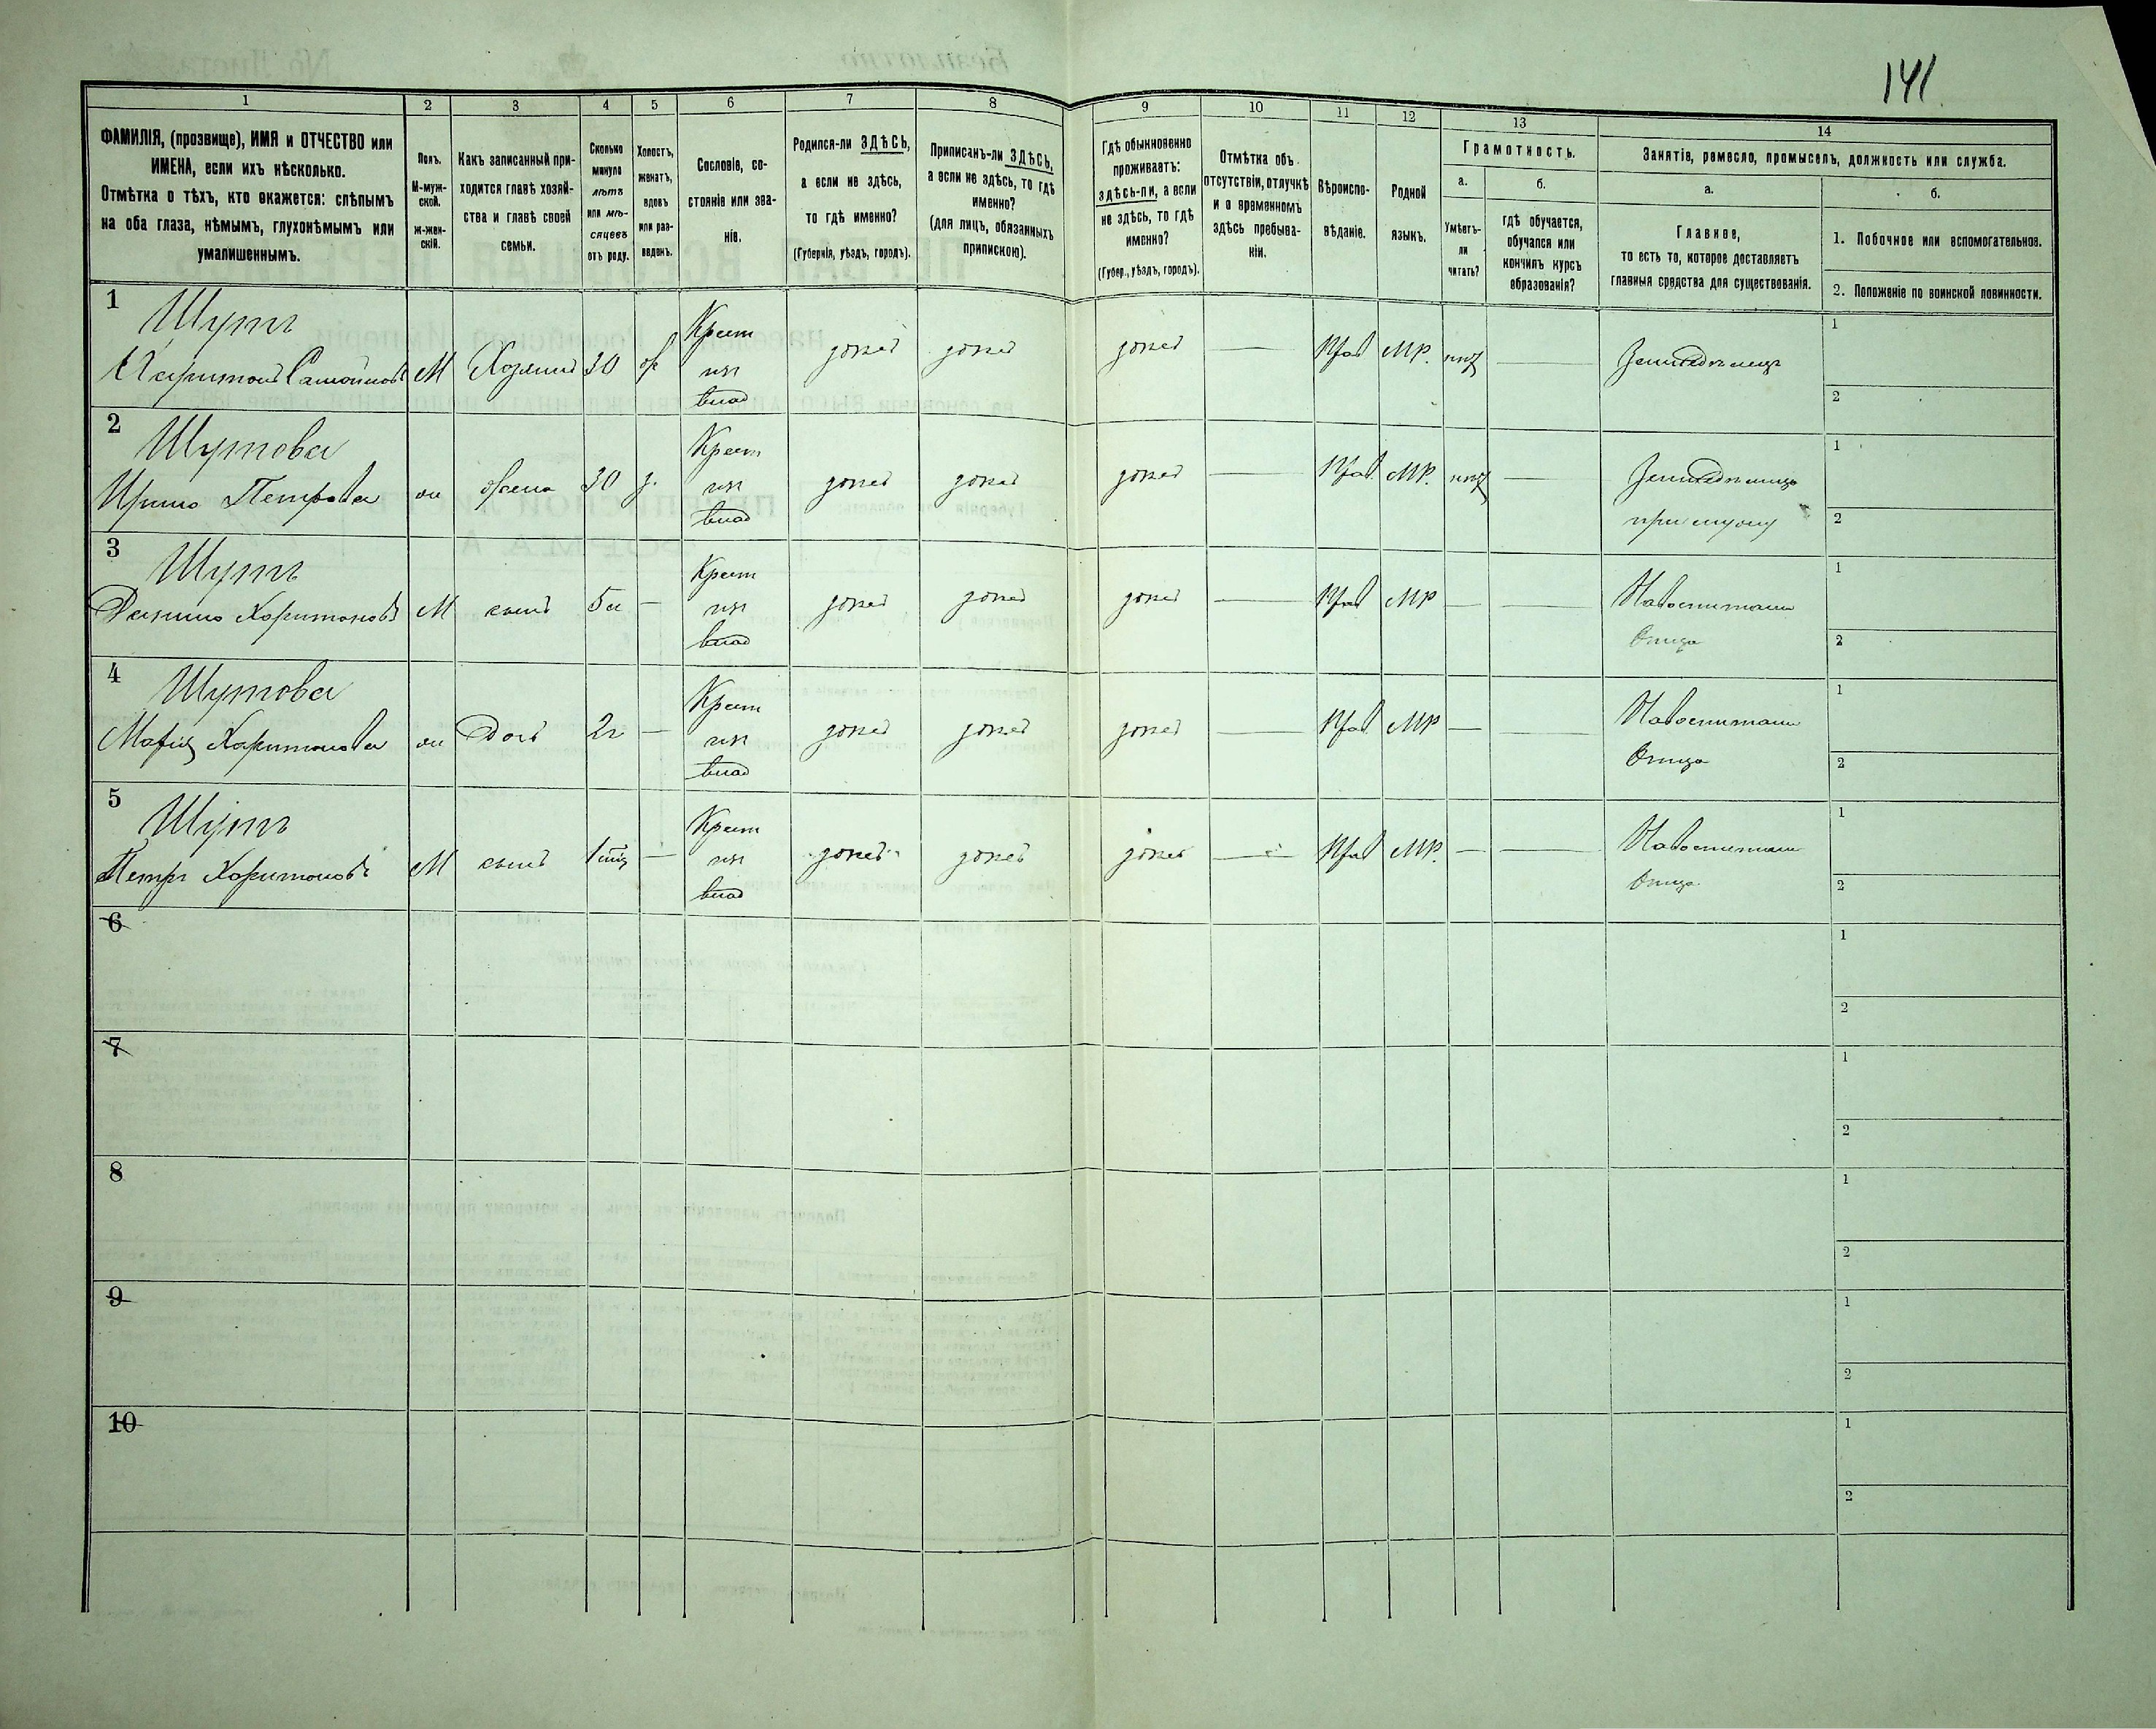 141
1
2
3
4
5
6
7
8
9
10
11
12
13
14
ФАМИЛІЯ, (прозвище), ИМЯ и ОТЧЕСТВО или
ИМЕНА, если ихъ нѣсколько.
Отмѣтка о тѣхъ, кто окажется: слѣпымъ
на оба глаза, нѣмымъ, глухонѣмымъ или
умалишеннымъ.
Полъ.
М-муж-
ской.
ж-жен-
скій.
Какъ записанный при-
ходится главѣ хозяй-
ства и главѣ своей
семьи.
Сколько
минуло
лѣтъ
или мѣ-
сяцевъ
отъ роду.
Холостъ,
женатъ,
вдовъ
или раз-
веденъ.
Сословіе, со-
стояніе или зва-
ніе.
Родился-ли ЗДѢСЬ,
а если не здѣсь,
то гдѣ именно?
(Губернія, уѣздъ, городъ).
Приписанъ-ли ЗДѢСЬ,
а если не здѣсь, то гдѣ
именно?
(для лицъ, обязанныхъ
припискою).
Гдѣ обыкновенно
проживаетъ:
здѣсь-ли, а если
не здѣсь, то гдѣ
именно?
(Губер., уѣздъ, городъ).
Отмѣтка объ
отсутствіи, отлучкѣ
и о временномъ
здѣсь пребыва-
ніи.
Вѣроиспо-
вѣданіе.
Родной
языкъ.
Грамотность.
а.
Умѣетъ-
ли
читать?
б.
гдѣ обучается,
обучался или
кончилъ курсъ
образованія?
Занятіе, ремесло, промыселъ, должность или служба.
а.
Главное,
то есть то, которое доставляетъ
главныя средства для существованія.
б.
1. Побочное или вспомогательное.
2. Положеніе по воинской повинности.
1
Шутъ
Харитонъ
М
Хозяинъ
30
ж
Крест
изъ
влад
здѣсь
здѣсь
здѣсь
Прав
МР.
нѣт
Земледѣлецъ
1
2
2
Шутова
Ирина Петрова
ж
жена
30
з.
Крест
изъ
влад
здѣсь
здѣсь
здѣсь
Прав.
МР.
нѣт
при мужу
1
2
3
Шутъ
Харитоновъ
М
сынъ
5 л
Крест
изъ
влад
здѣсь
здѣсь
здѣсь
Прав
МР
Отца
1
2
4
Шутова
Марія Харитонова
ж
Дочь
2 г
Крест
изъ
влад
здѣсь
здѣсь
здѣсь
Прав.
МР
Отца
1
2
5
Шутъ
Петръ Харитоновъ
М
сынъ
Крест
изъ
влад
здѣсь
здѣсь
здѣсь
Прав
МР.
Отца
1
2
6
1
2
7
1
2
8
1
2
9
1
2
10
1
2